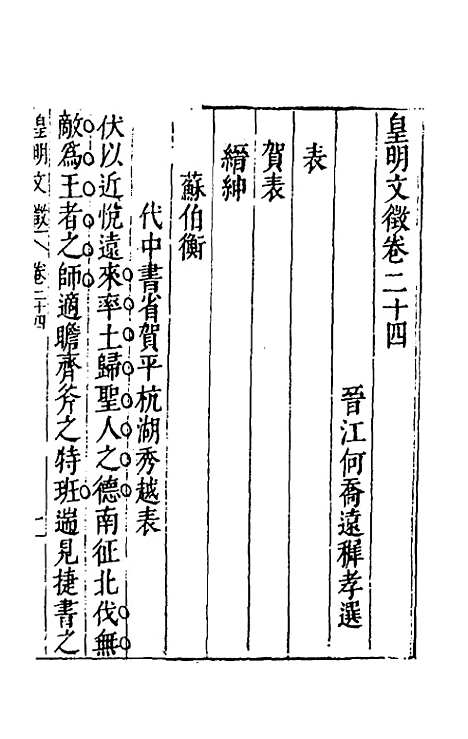 皇明文徵卷二十四
晉江何喬遠穉孝選
表
賀表
縉紳
蘇伯衡
代中書省賀平杭湖秀越表
伏以近悅遠來率土歸聖人之德南征北伐無
敵爲王者之師適瞻齊斧之特班遄見捷書之
皇明文徵 卷二十四 一